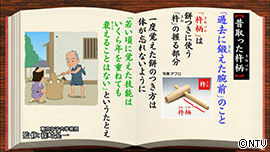 「昔取った杵柄」
「過去に鍛えた腕前」のこと
「杵柄」は
餅つきに使う
「杵」の握る部分
杵
写真:アフロ
一度覚えた餅のつき方は
体が忘れないように
「若い頃に覚えた技能は
いくら年を重ねても
衰えることはない」というたとえ
©NTV